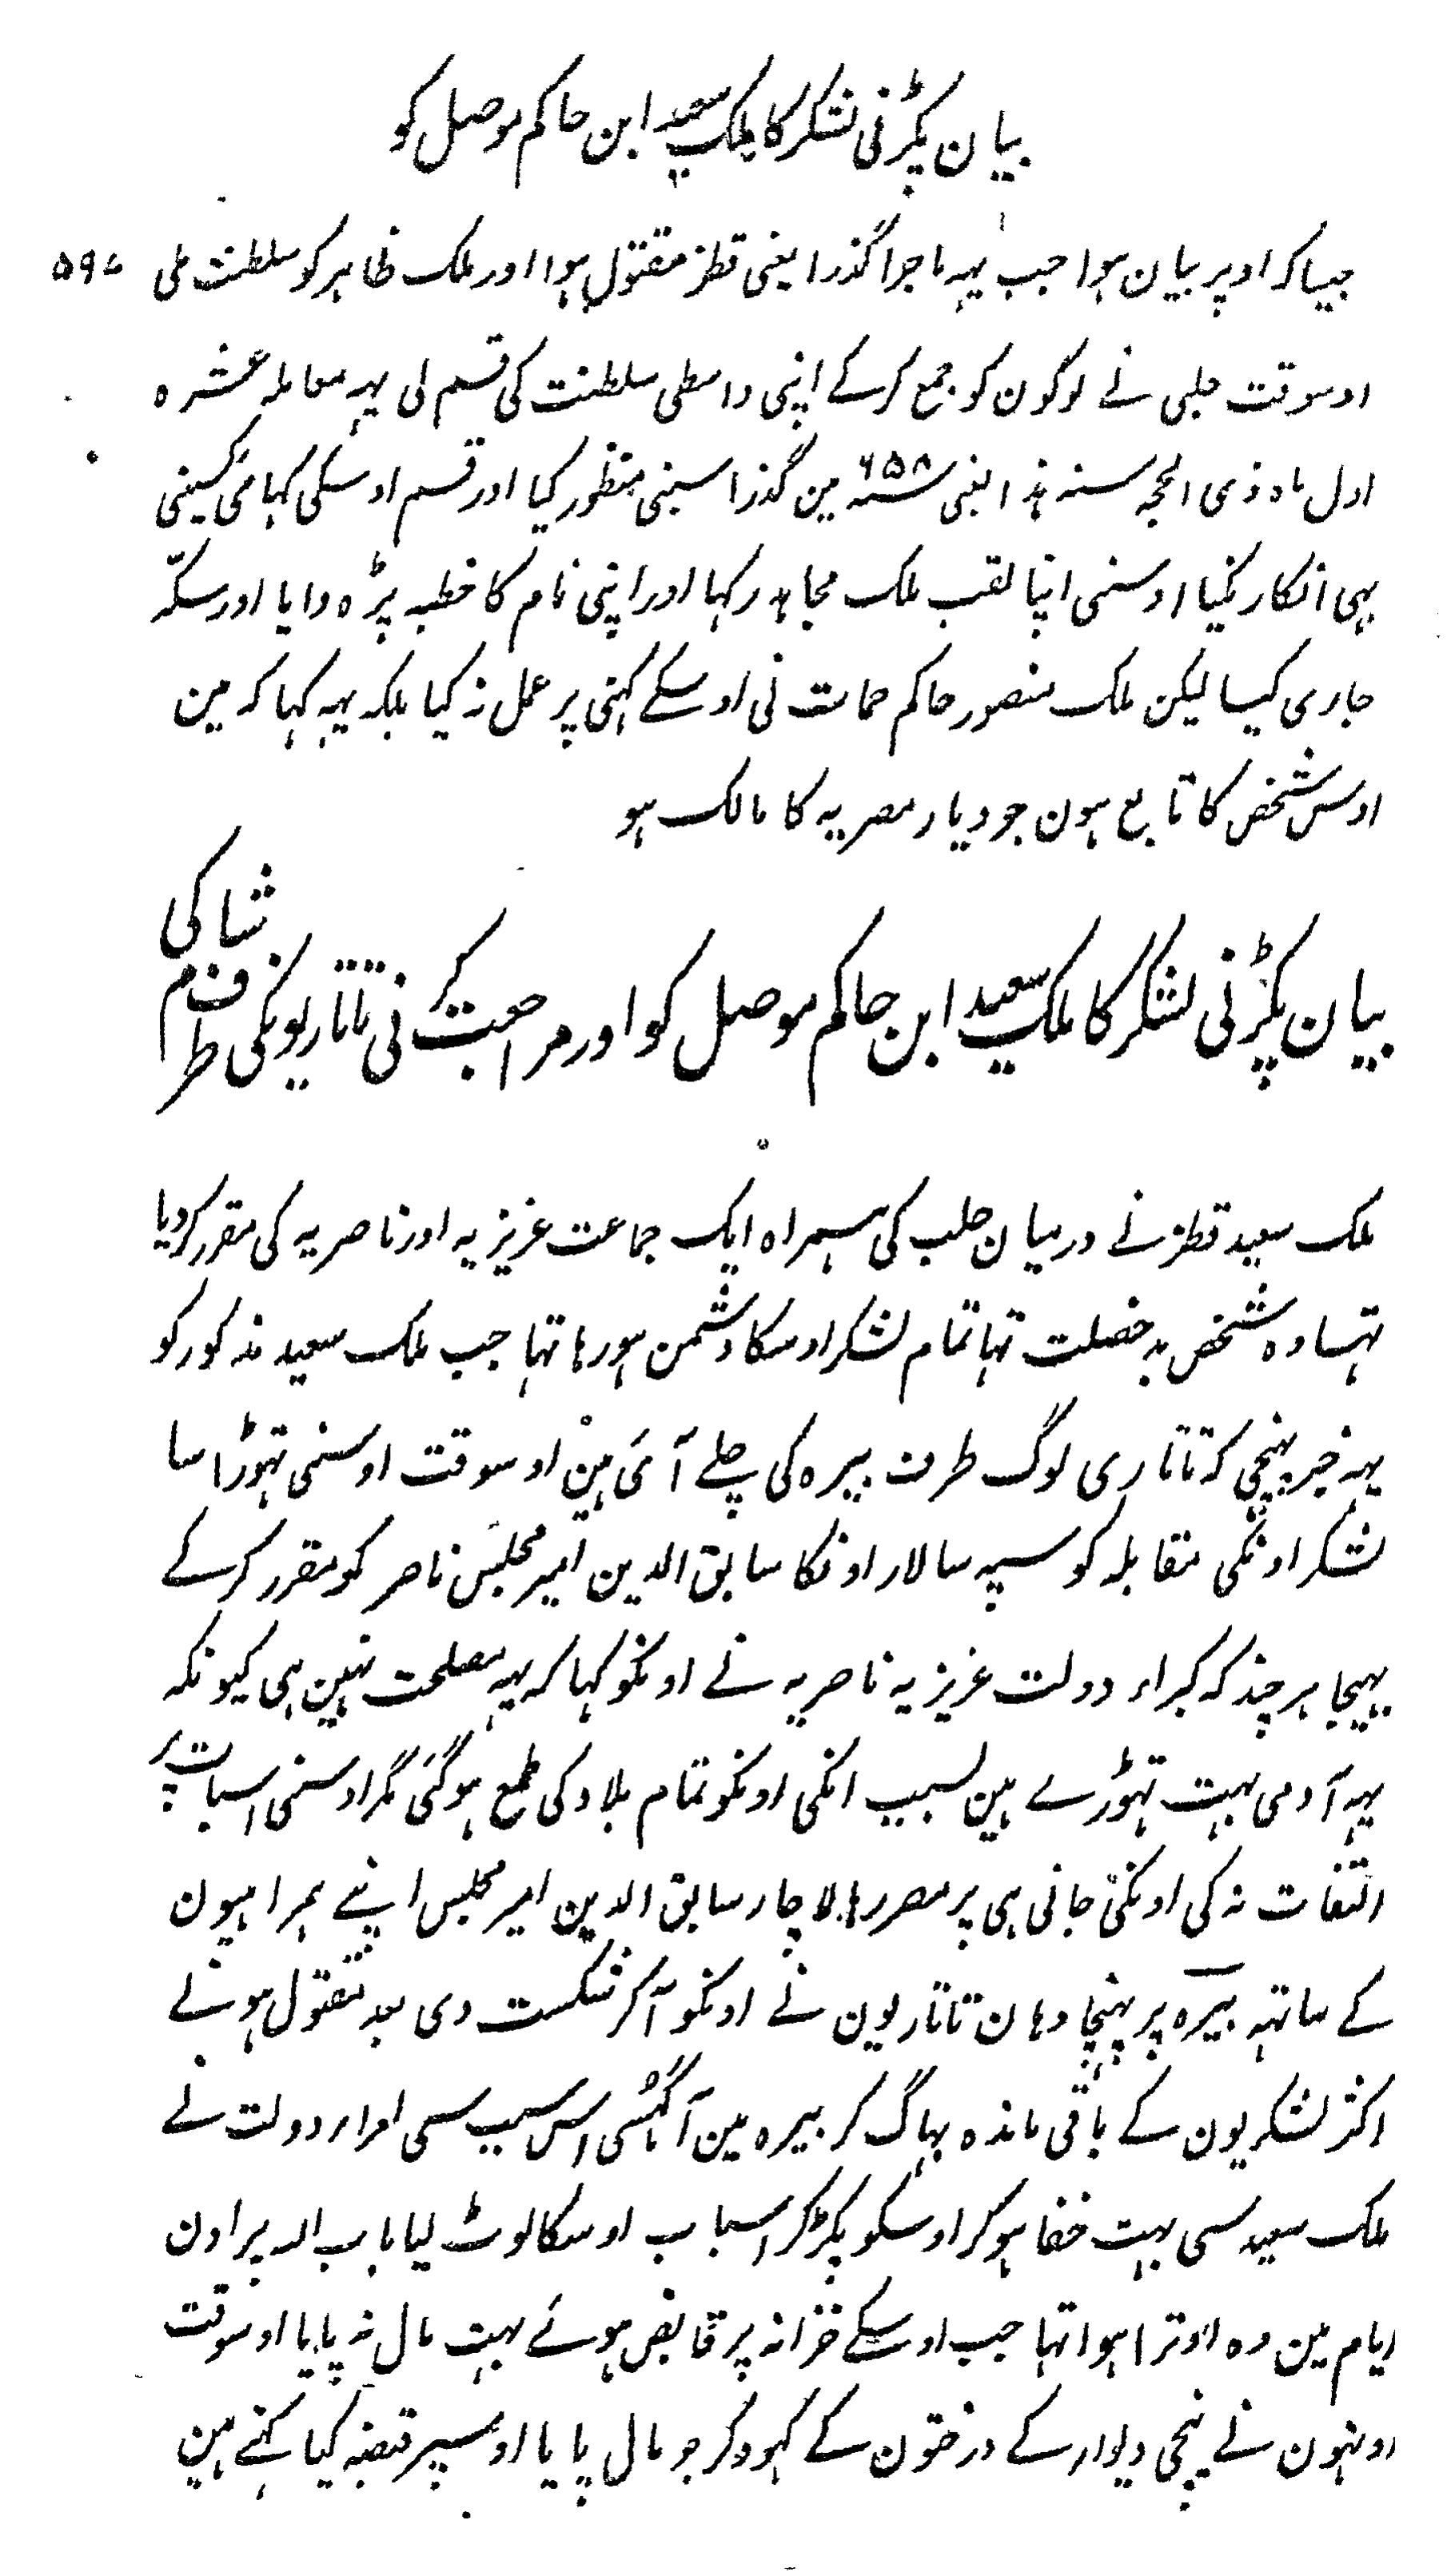 بیان پکڑنی لشکر کا ملک سعید ابن حاکم موصل کو
جیسا کہ اوپر بیان ہوا جب یہہ ماجرا گذرا یعنی قطز مقتول ہوا اور ملک ظاہر کو سلطنت ملی ۵۹۷
اوسوقت حلبی نے لوگون کو جمع کرکے اپنی واسطی سلطنت کی قسم لی یہہ معاملہ عشرہ
اول ماہ ذی الحجہ سنہ ہذا یعنی سنہ ۶۵۸ مین گذرا سبنی منظور کیا اور قسم اوسکی کہائی کسینی
بہی انکار نکیا اوسنی اپنا لقب ملک مجاہد رکہا اور اپنی نام کا خطبہ پڑہوایا اور سکّہ
جاری کیا لیکن ملک منصور حاکم حمات نی اوسکے کہنی پر عمل نہ کیا بلکہ یہہ کہا کہ مین
اوس شخص کا تابع ہون جو دیار مصریہ کا مالک ہو
بیان پکڑنی لشکر کا ملک سعید ابن حاکم موصل کو اور مراجعت کرنی تاتاریونکی طرف شام کی
ملک سعید قطز نے درمیان حلب کی ہمراہ ایک جماعت عزیزیہ اور ناصریہ کی مقرر کردیا
تہا وہ شخص بد خصلت تہا تمام لشکر اوسکا دشمن ہو رہا تہا جب ملک سعید مذکور کو
یہہ خبر پہنچی کہ تاتاری لوگ طرف بیرہ کی چلے آئی ہین اوسوقت اوسنی تہوڑا سا
لشکر اونکی مقابلہ کو سپہ سالار اونکا سابق الدین امیر مجلس ناصر کو مقرر کرکے
بہیجا ہر چند کہ کبراء دولت عزیزیہ ناصریہ نے اونکو کہا کہ یہہ مصلحت نہین ہی کیونکہ
یہہ آدمی بہت تہوڑے ہین بسبب انکی اونکو تمام بلاد کی طمع ہوگئی مگر اوسنی اسبات پر
التفات نہ کی اونکی جانی ہی پر مصر رہا لاچار سابق الدین امیر مجلس اپنے ہمراہیون
کے ساتہہ بیرہ پر پہنچا وہان تاتاریون نے اونکو آکر شکست دی بعد مقتول ہونے
اکثر لشکریون کے باقی ماندہ بہاگ کر بیرہ مین آ گہسی اس سبب سی امراء دولت نے
ملک سعید سی بہت خفا ہوکر اوسکو پکڑکر اسباب اوسکا لوٹ لیا باب الہ پر اون
ایام مین وہ اوترا ہوا تہا جب اوسکے خزانہ پر قابض ہوئے بہت مال نہ پایا اوسوقت
اونہون نے نیچی دیوار کے درختون کے کہود کر جو مال پایا اوسپر قبضہ کیا کہتے ہین